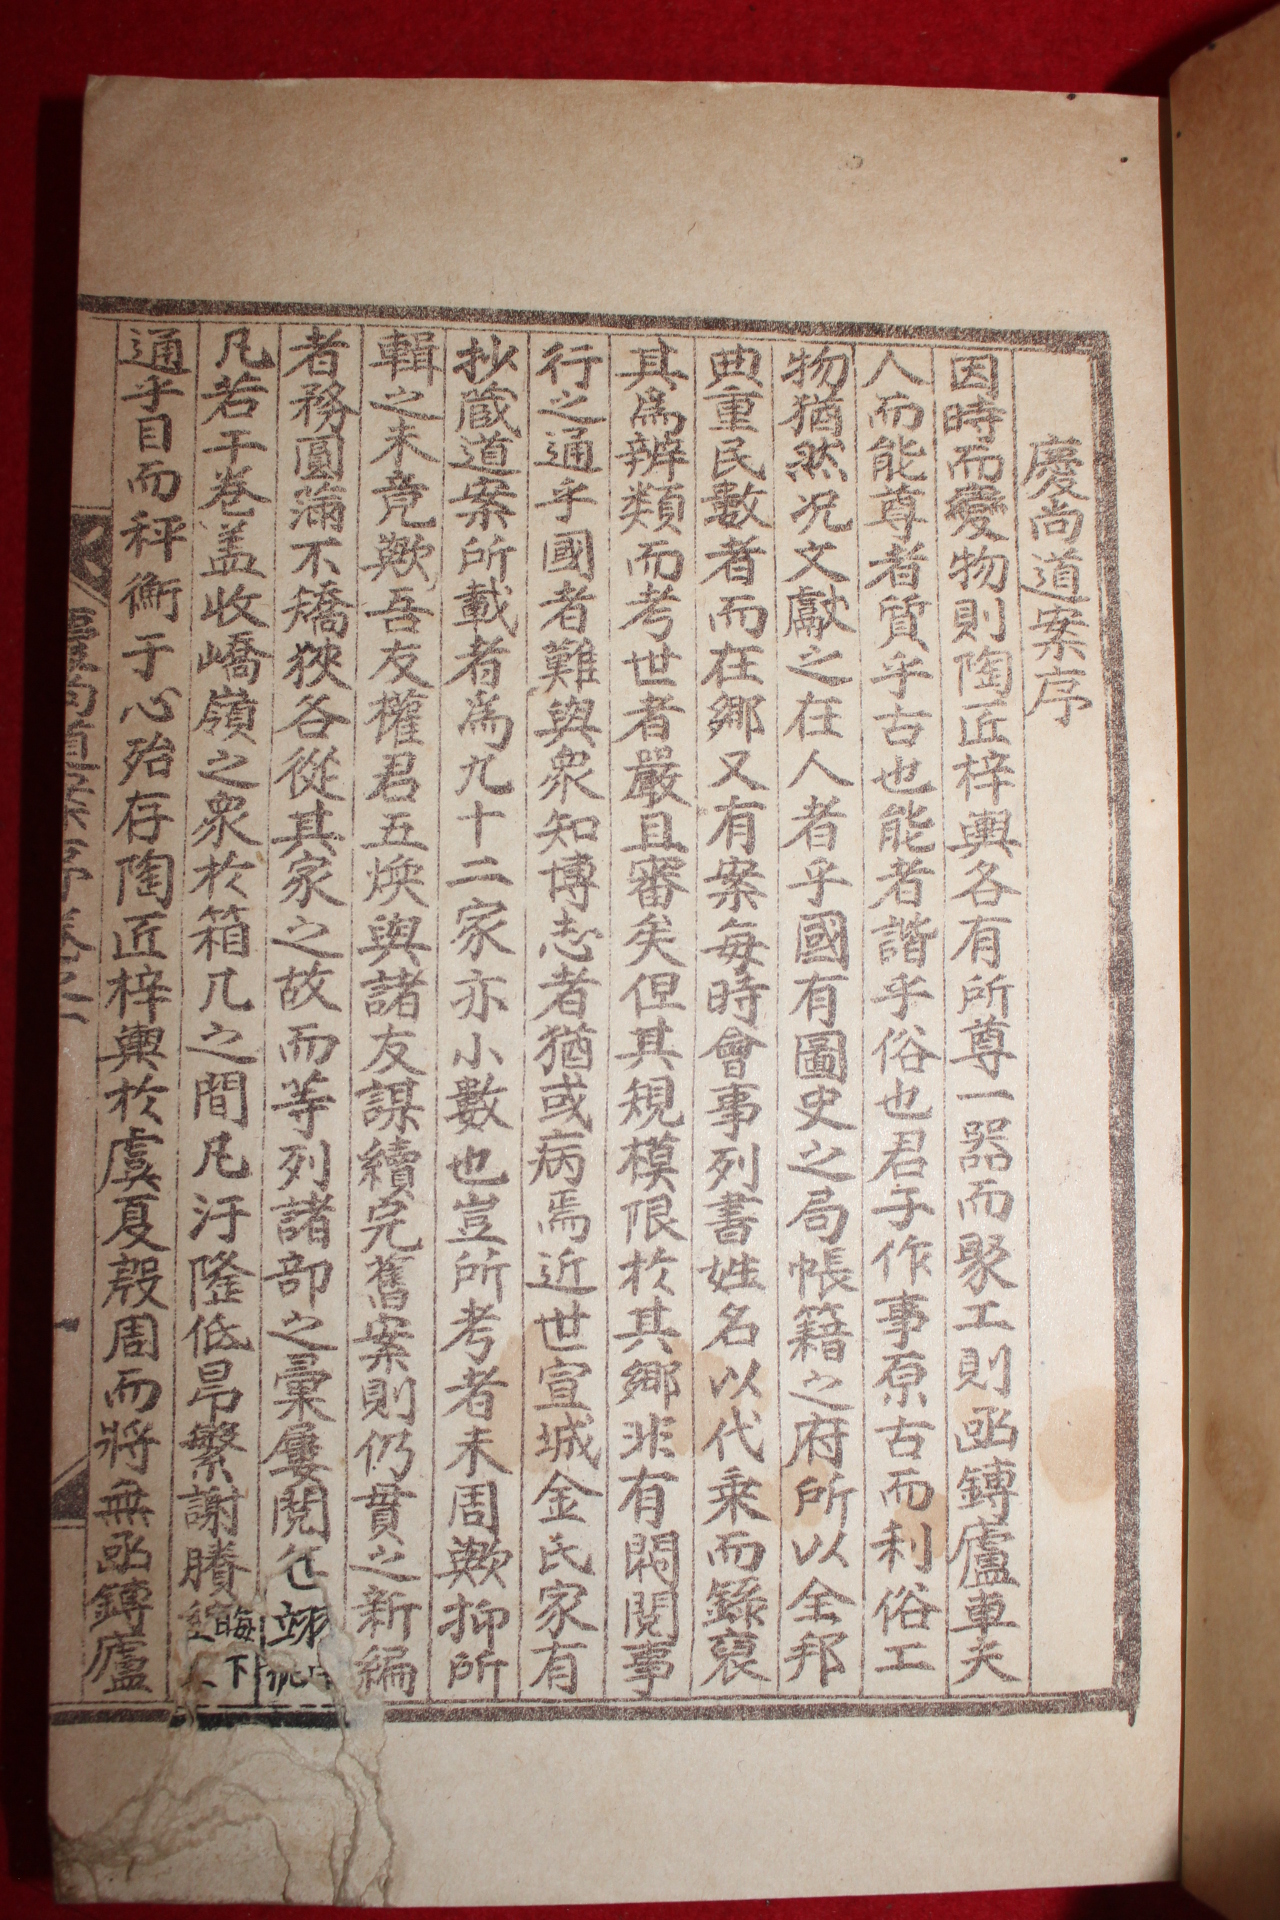 慶尚道案序
因時而變物則陶匠梓輿各有所尊一器而聚工則凾鎛廬車夫
人而能尊者質乎古也能者諧乎俗也君子作事原古而利俗工
物猶然况文獻之在人者乎國有圖史之局帳籍之府所以全邦
典重民數者而在鄉又有案每時會事列書姓名以代乘而錄裒
其爲辨類而考世者嚴且審矣但其規模限於其鄉非有閥閱事
行之通乎國者難與衆知博志者猶或病焉近世宣城金氏家有
抄藏道案所載者爲九十二家亦小數也豈所考者未周歟抑所
輯之未竟歟吾友權君五煥與諸友謀續完舊案則仍貫之新編
者務圓滿不矯狹各從其家之故而等列諸部之彙屢閱
凡若干卷盖收嶠嶺之衆於箱几之間凡汙隆低昂繁謝賸
通乎目而秤衡于心殆存陶匠梓輿於虞夏殷周而將無凾鎛廬
慶尚道案序卷之一